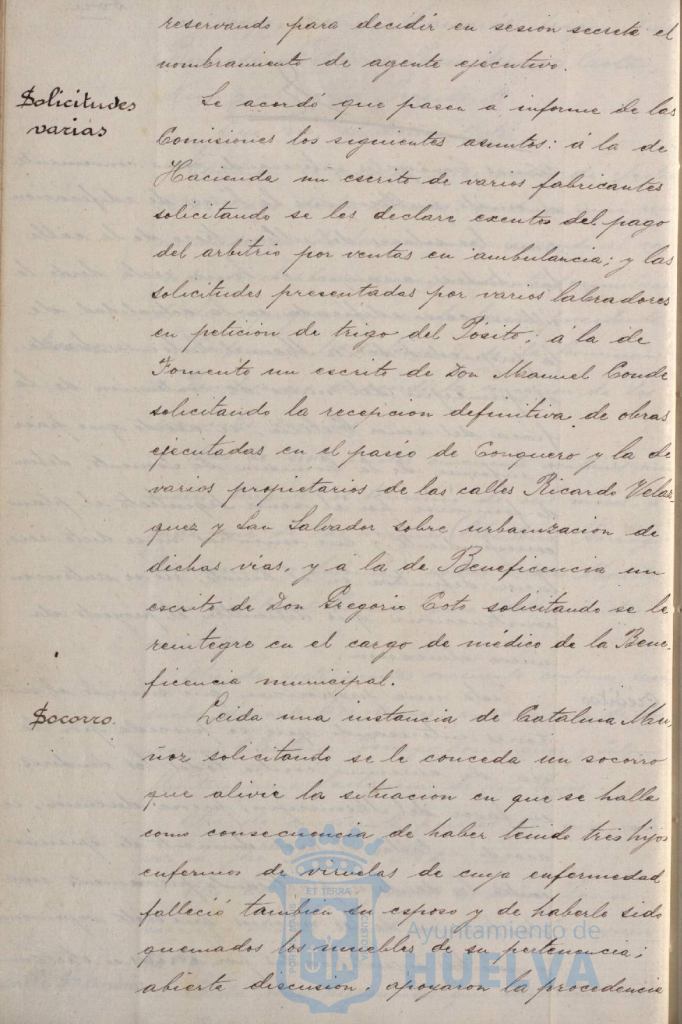 reservando para decidir en sesión secreta el
nombramiento de agente ejecutivo.
Solicitudes
varias
Se acordó que pasen á informe de las
Comisiones los siguientes asuntos: á la de
Hacienda un escrito de varios fabricantes
solicitando se les declare exentos del pago
del arbitrio por ventas en ambulancia; y las
solicitudes presentadas por varios labradores
en petición de trigo del Pósito; á la de
Fomento un escrito de Don Manuel Conde
solicitando la recepcion definitiva de obras
ejecutadas en el paseo de Conquero y la de
varios propietarios de las calles Ricardo Velaz-
quez y San Salvador sobre urbanizacion de
dichas vias, y á la de Beneficencia un
escrito de Don Gregorio Coto solicitando se le
reintegre en el cargo de médico de la Bene-
ficencia municipal.
Socorro.
Leida una instancia de Catalina Mu-
ñoz solicitando se le conceda un socorro
que alivie la situación en que se halla
como consecuencia de haber tenido tres hijos
enfermos de viruelas de cuya enfermedad
falleció tambien su esposo y de haberle sido
quemados los muebles de su pertenencia;
abierta discusion, apoyaron la procedencia
ET TERRA
Ayuntamiento de
HUELVA